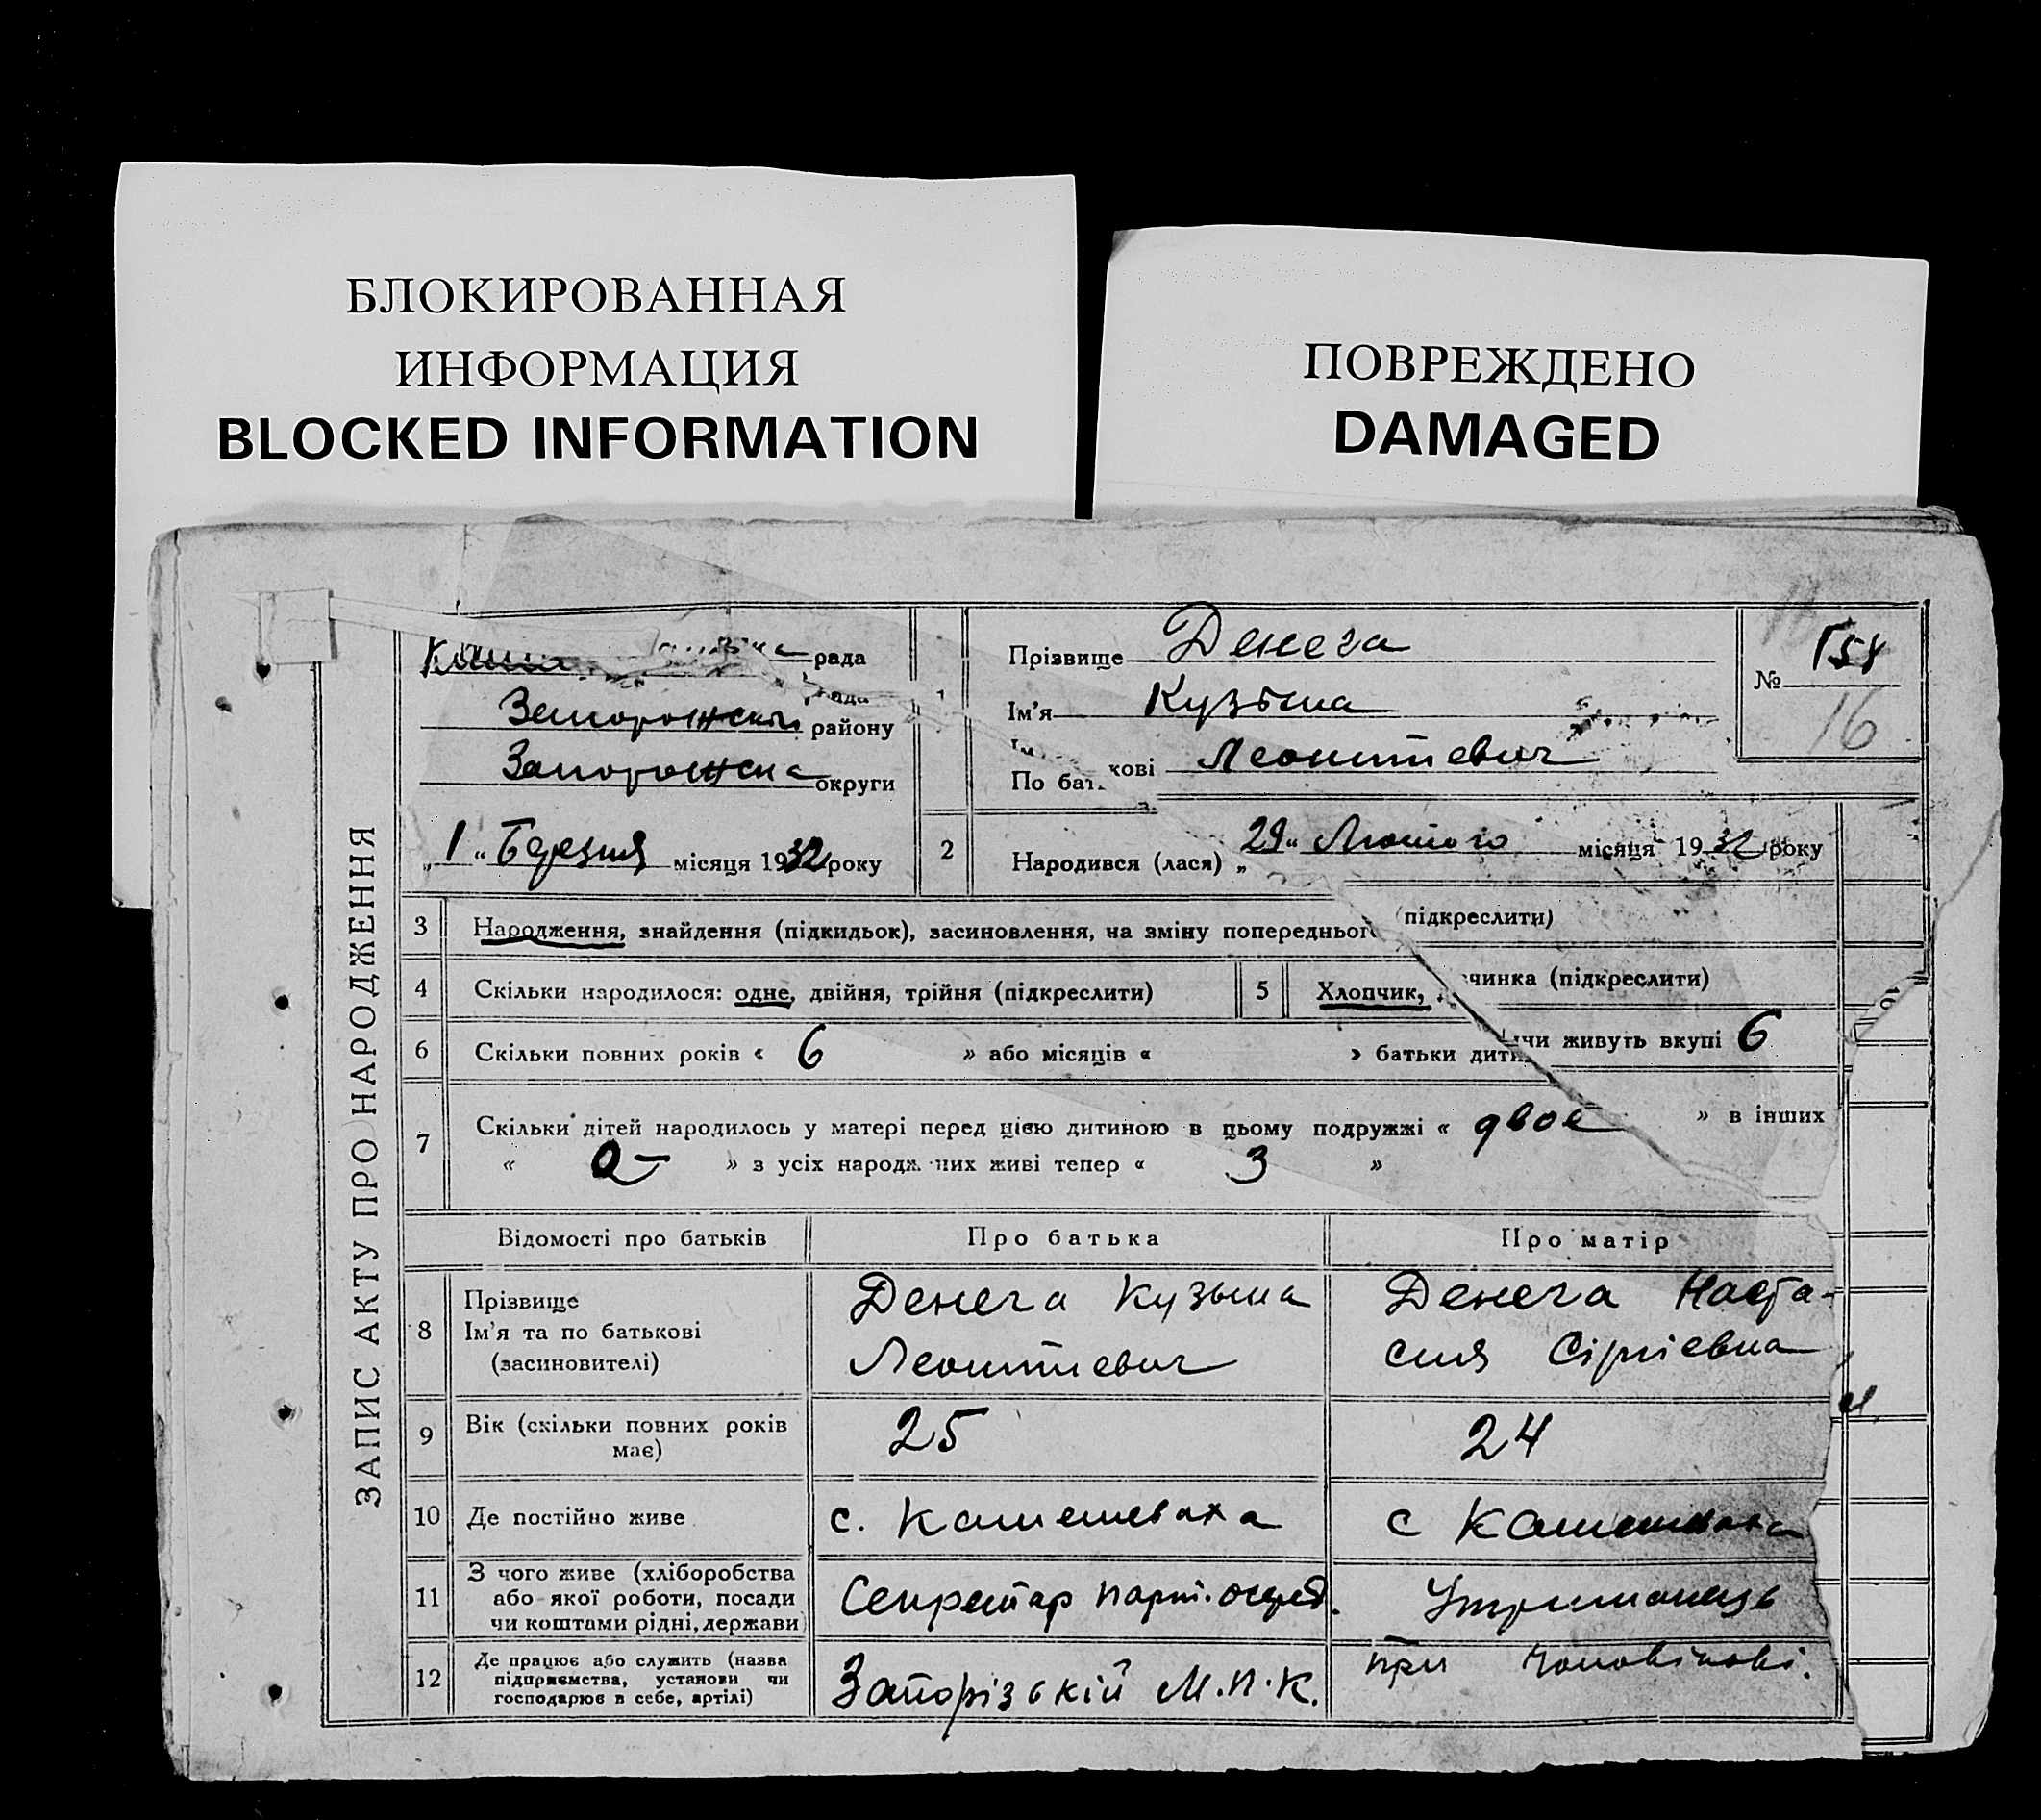 БЛОКИРОВАННАЯ
ИНФОРМАЦИЯ
BLOCKED INFORMATION
ПОВРЕЖДЕНО
DAMAGED
ЗАПИС АКТУ ПРО НАРОДЖЕННЯ
рада
району
Запорожска округи
„ 1 “ Березня місяця 1932 року
1
Прізвище Денега
Ім’я Кузьма
По бат кові Леонтиевич
№
16
2
Народився (лася) „ 29 “ Лютого місяця 1932 року
3 Народження, знайдення (підкидьок), засиновлення, на зміну попереднього (підкреслити)
4 Скільки народилося: одне, двійня, трійня (підкреслити)
5 Хлопчик, чинка (підкреслити)
6 Скільки повних років « 6 » або місяців « » батьки дити чи живуть вкупі 6
7 Скільки дітей народилось у матері перед цією дитиною в цьому подружжі « двоє » в інших
« 0 — » з усіх народж них живі тепер « 3 »
Відомості про батьків Про батька Про матір
8 Прізвище
Ім’я та по батькові
(засиновителі)
Денега Кузьма
Леонтиевич
Денега Наста-
сия Сіргіевна
9 Вік (скільки повних років
має)
25
24
10 Де постійно живе
с. Камешеваха
с
11 З чого живе (хліборобства
або якої роботи, посади
чи коштами рідні, держави
Секретар парт. осеред.
Утриманець
12 Де працює або служить (назва
підприємства, установи чи
господарює в себе, артілі)
Запорізькій М.П.К.
при чоловікові.